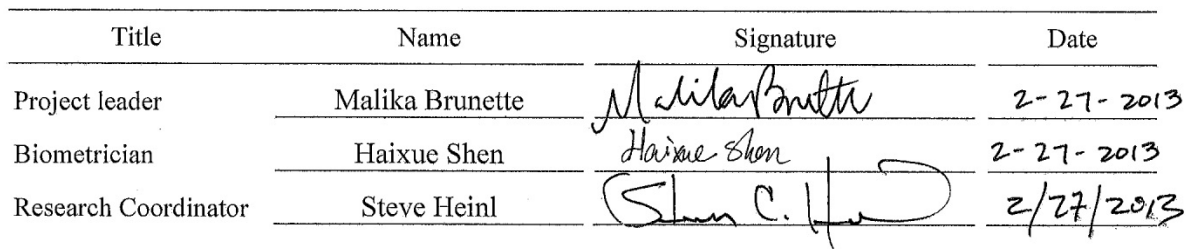 Title Name Signature Date
Project leader Malika Brunette Malika Brunette 2-27-2013
Biometrician Haixue Shen Haixue Shen 2-27-2013
Research Coordinator Steve Heinl Steven C. H 2/27/2013